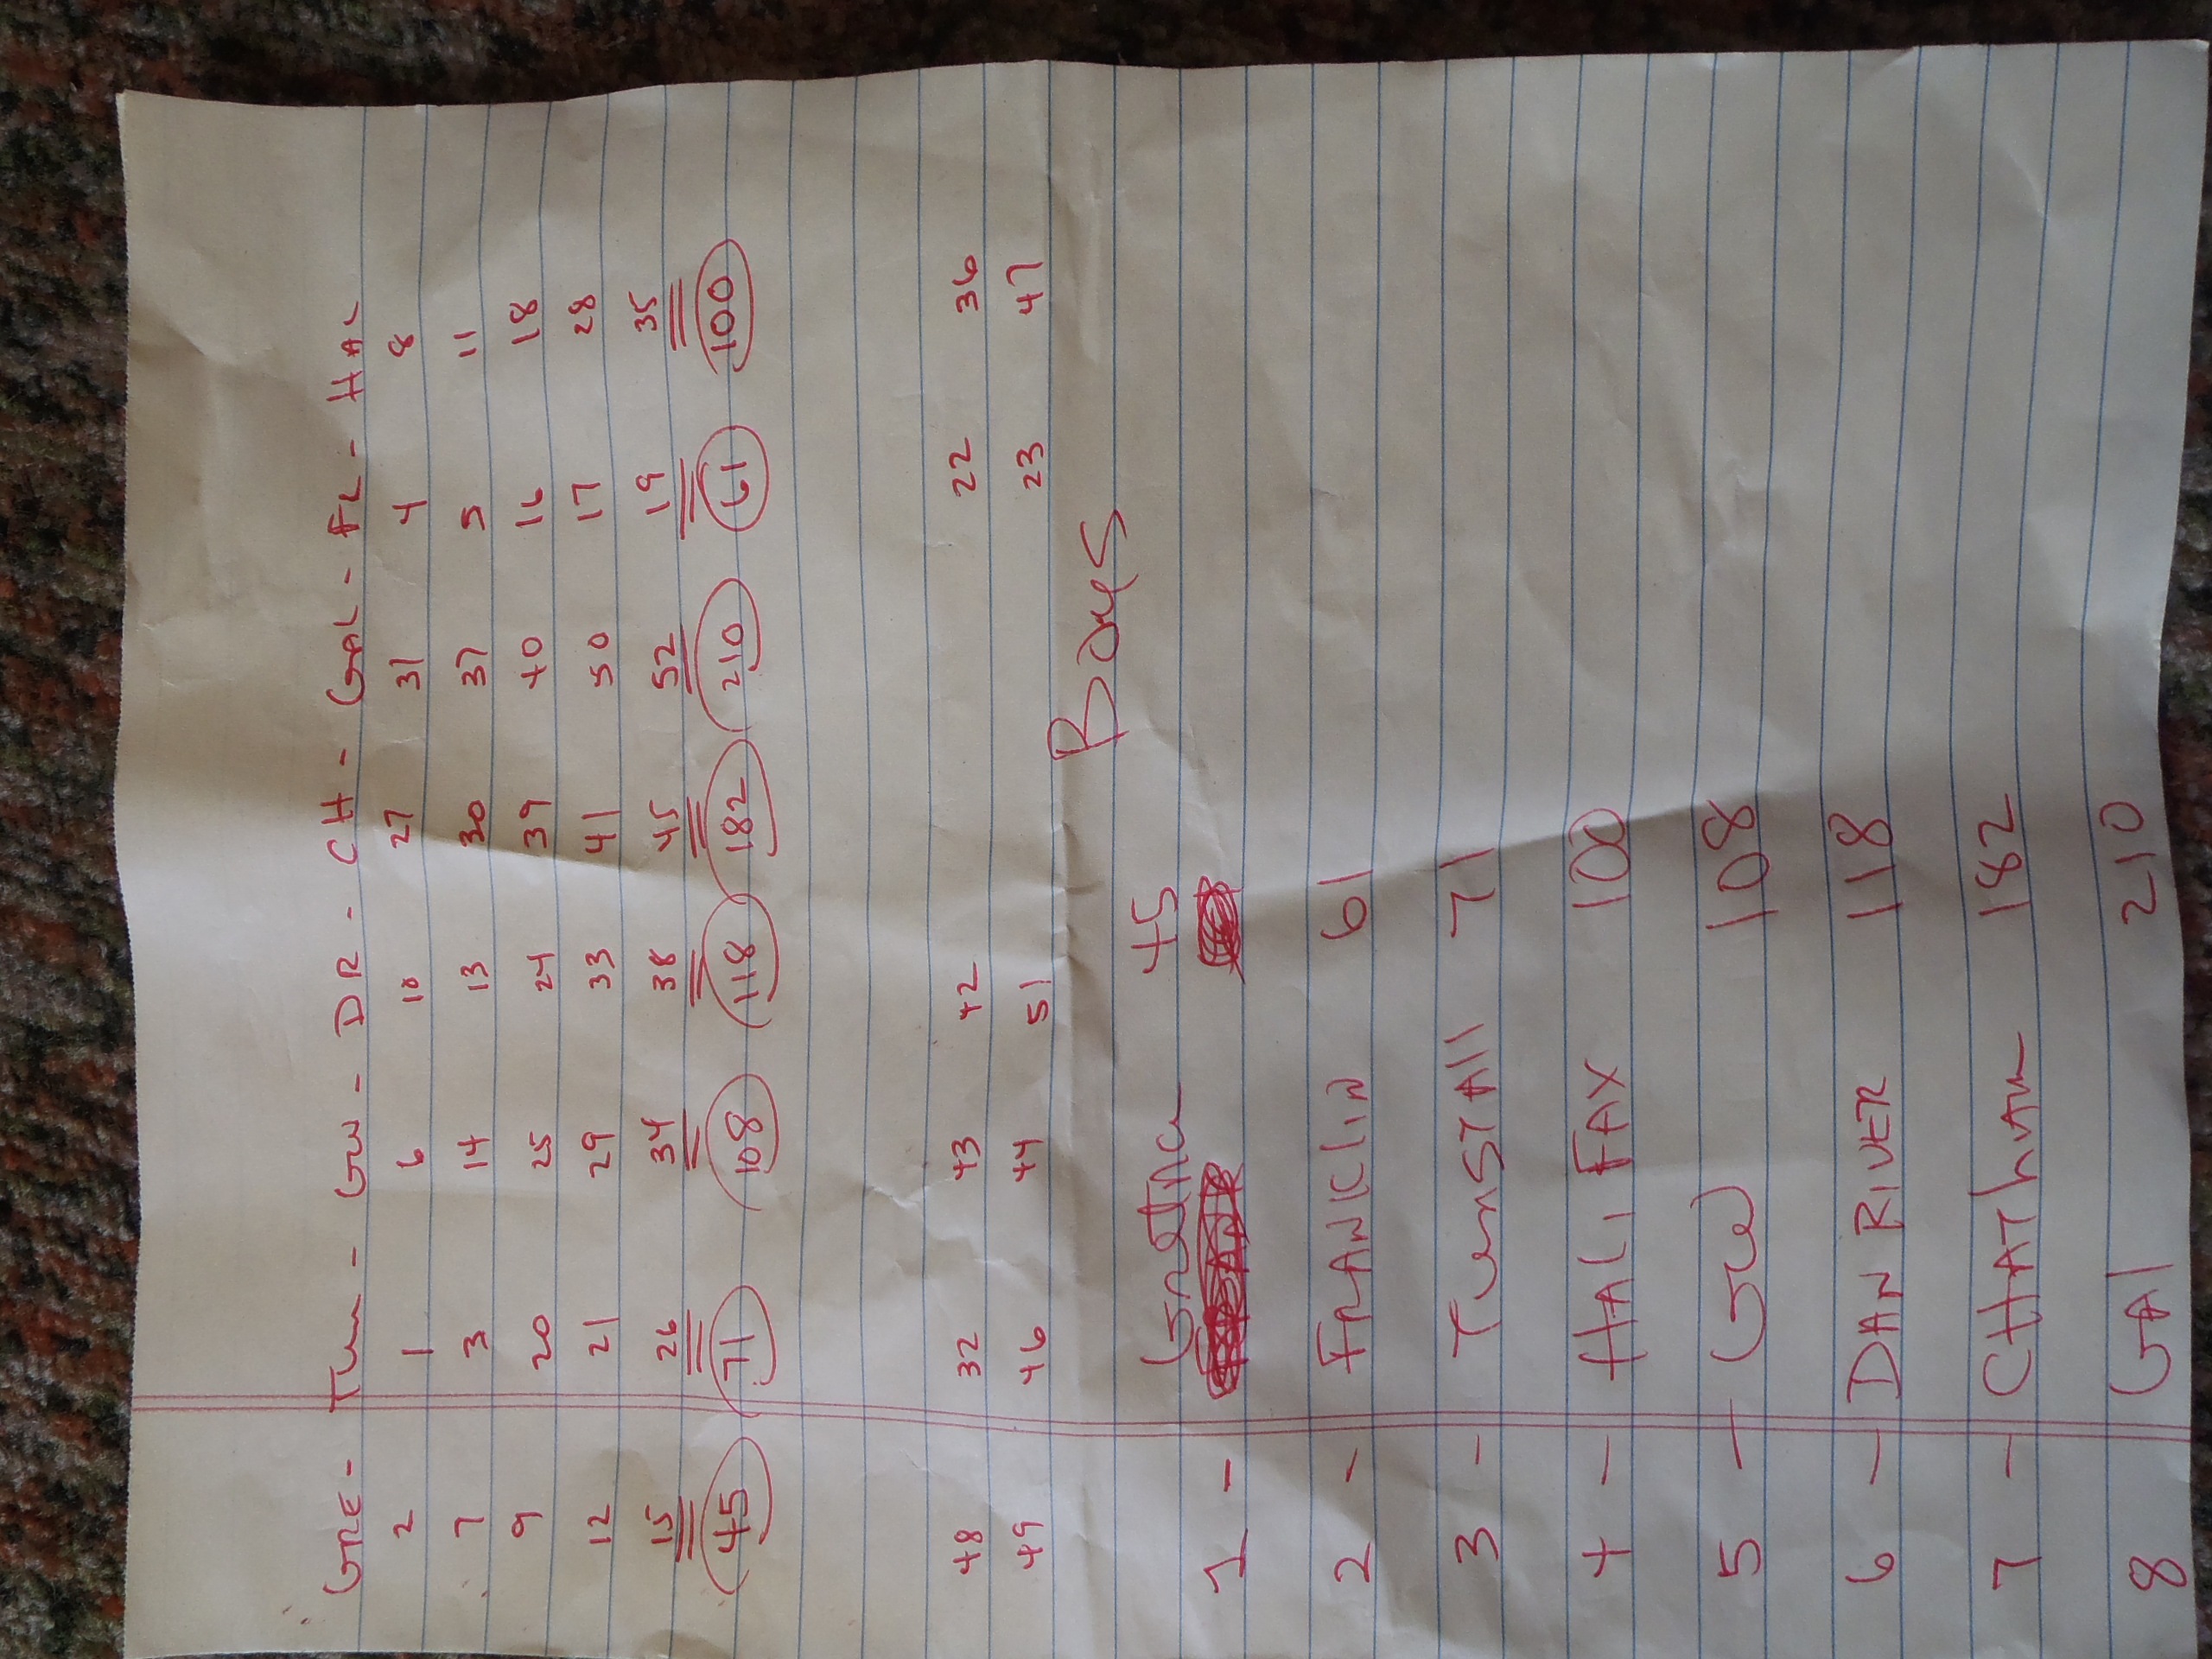 GRE - Tun - GW - DR - CH - GAL - FL - HAL
2 1 6 10 27 31 4 8
7 3 14 13 30 37 5 11
9 20 25 24 39 40 16 18
12 21 29 33 41 50 17 28
15 26 34 38 45 52 19 35
45 71 108 118 182 210 61 100
48 32 43 42 22 36
49 46 44 51 23 47
Boys
1 - Gretna 45
2 - FRANKlIN 61
3 - TunSTAll 71
4 - HALIFAX 100
5 - GW 108
6 - DAN RIVER 118
7 - CHAThAm 182
8 GAl 210